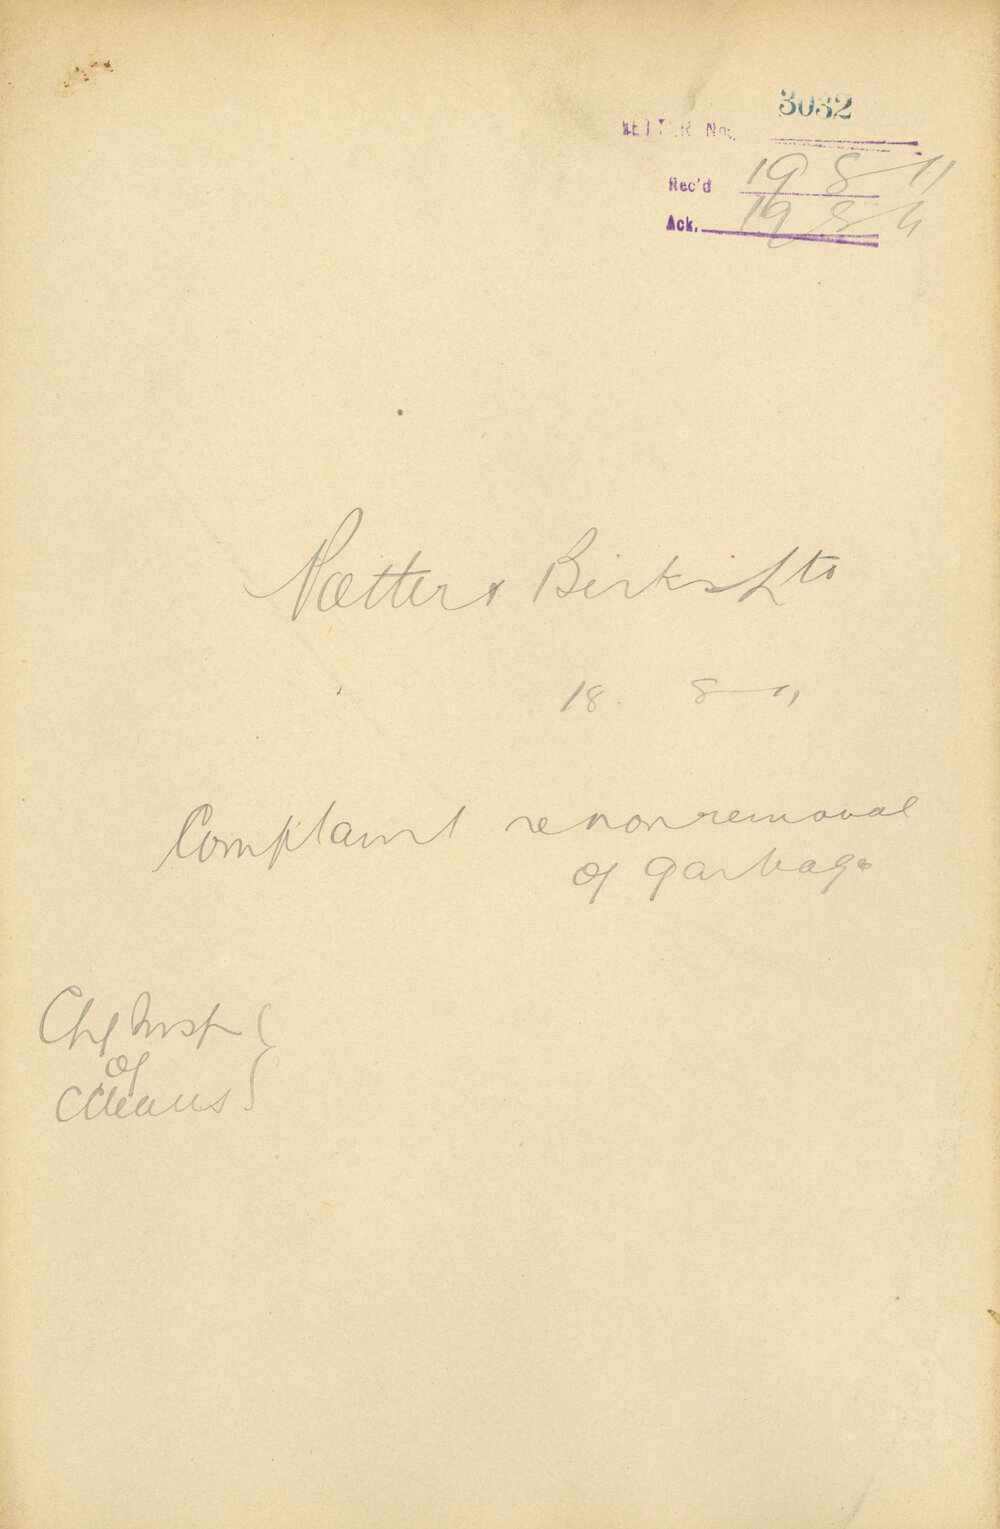 3032
LETTER No.
Rec'd 19 8 11
Ack. 19 8 11
18 8 11
Complaint re non removal
of garbage
Chf Insp
of